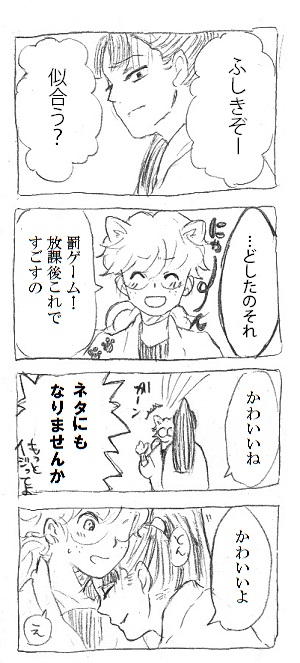 ふしきぞー
似合う？
…どしたのそれ
にゃーん
罰ゲーム！
放課後これで
すごすの
かわいいね
ガーン
ネタにも
なりませんか
もっと
イジってよ
かわいいよ
え